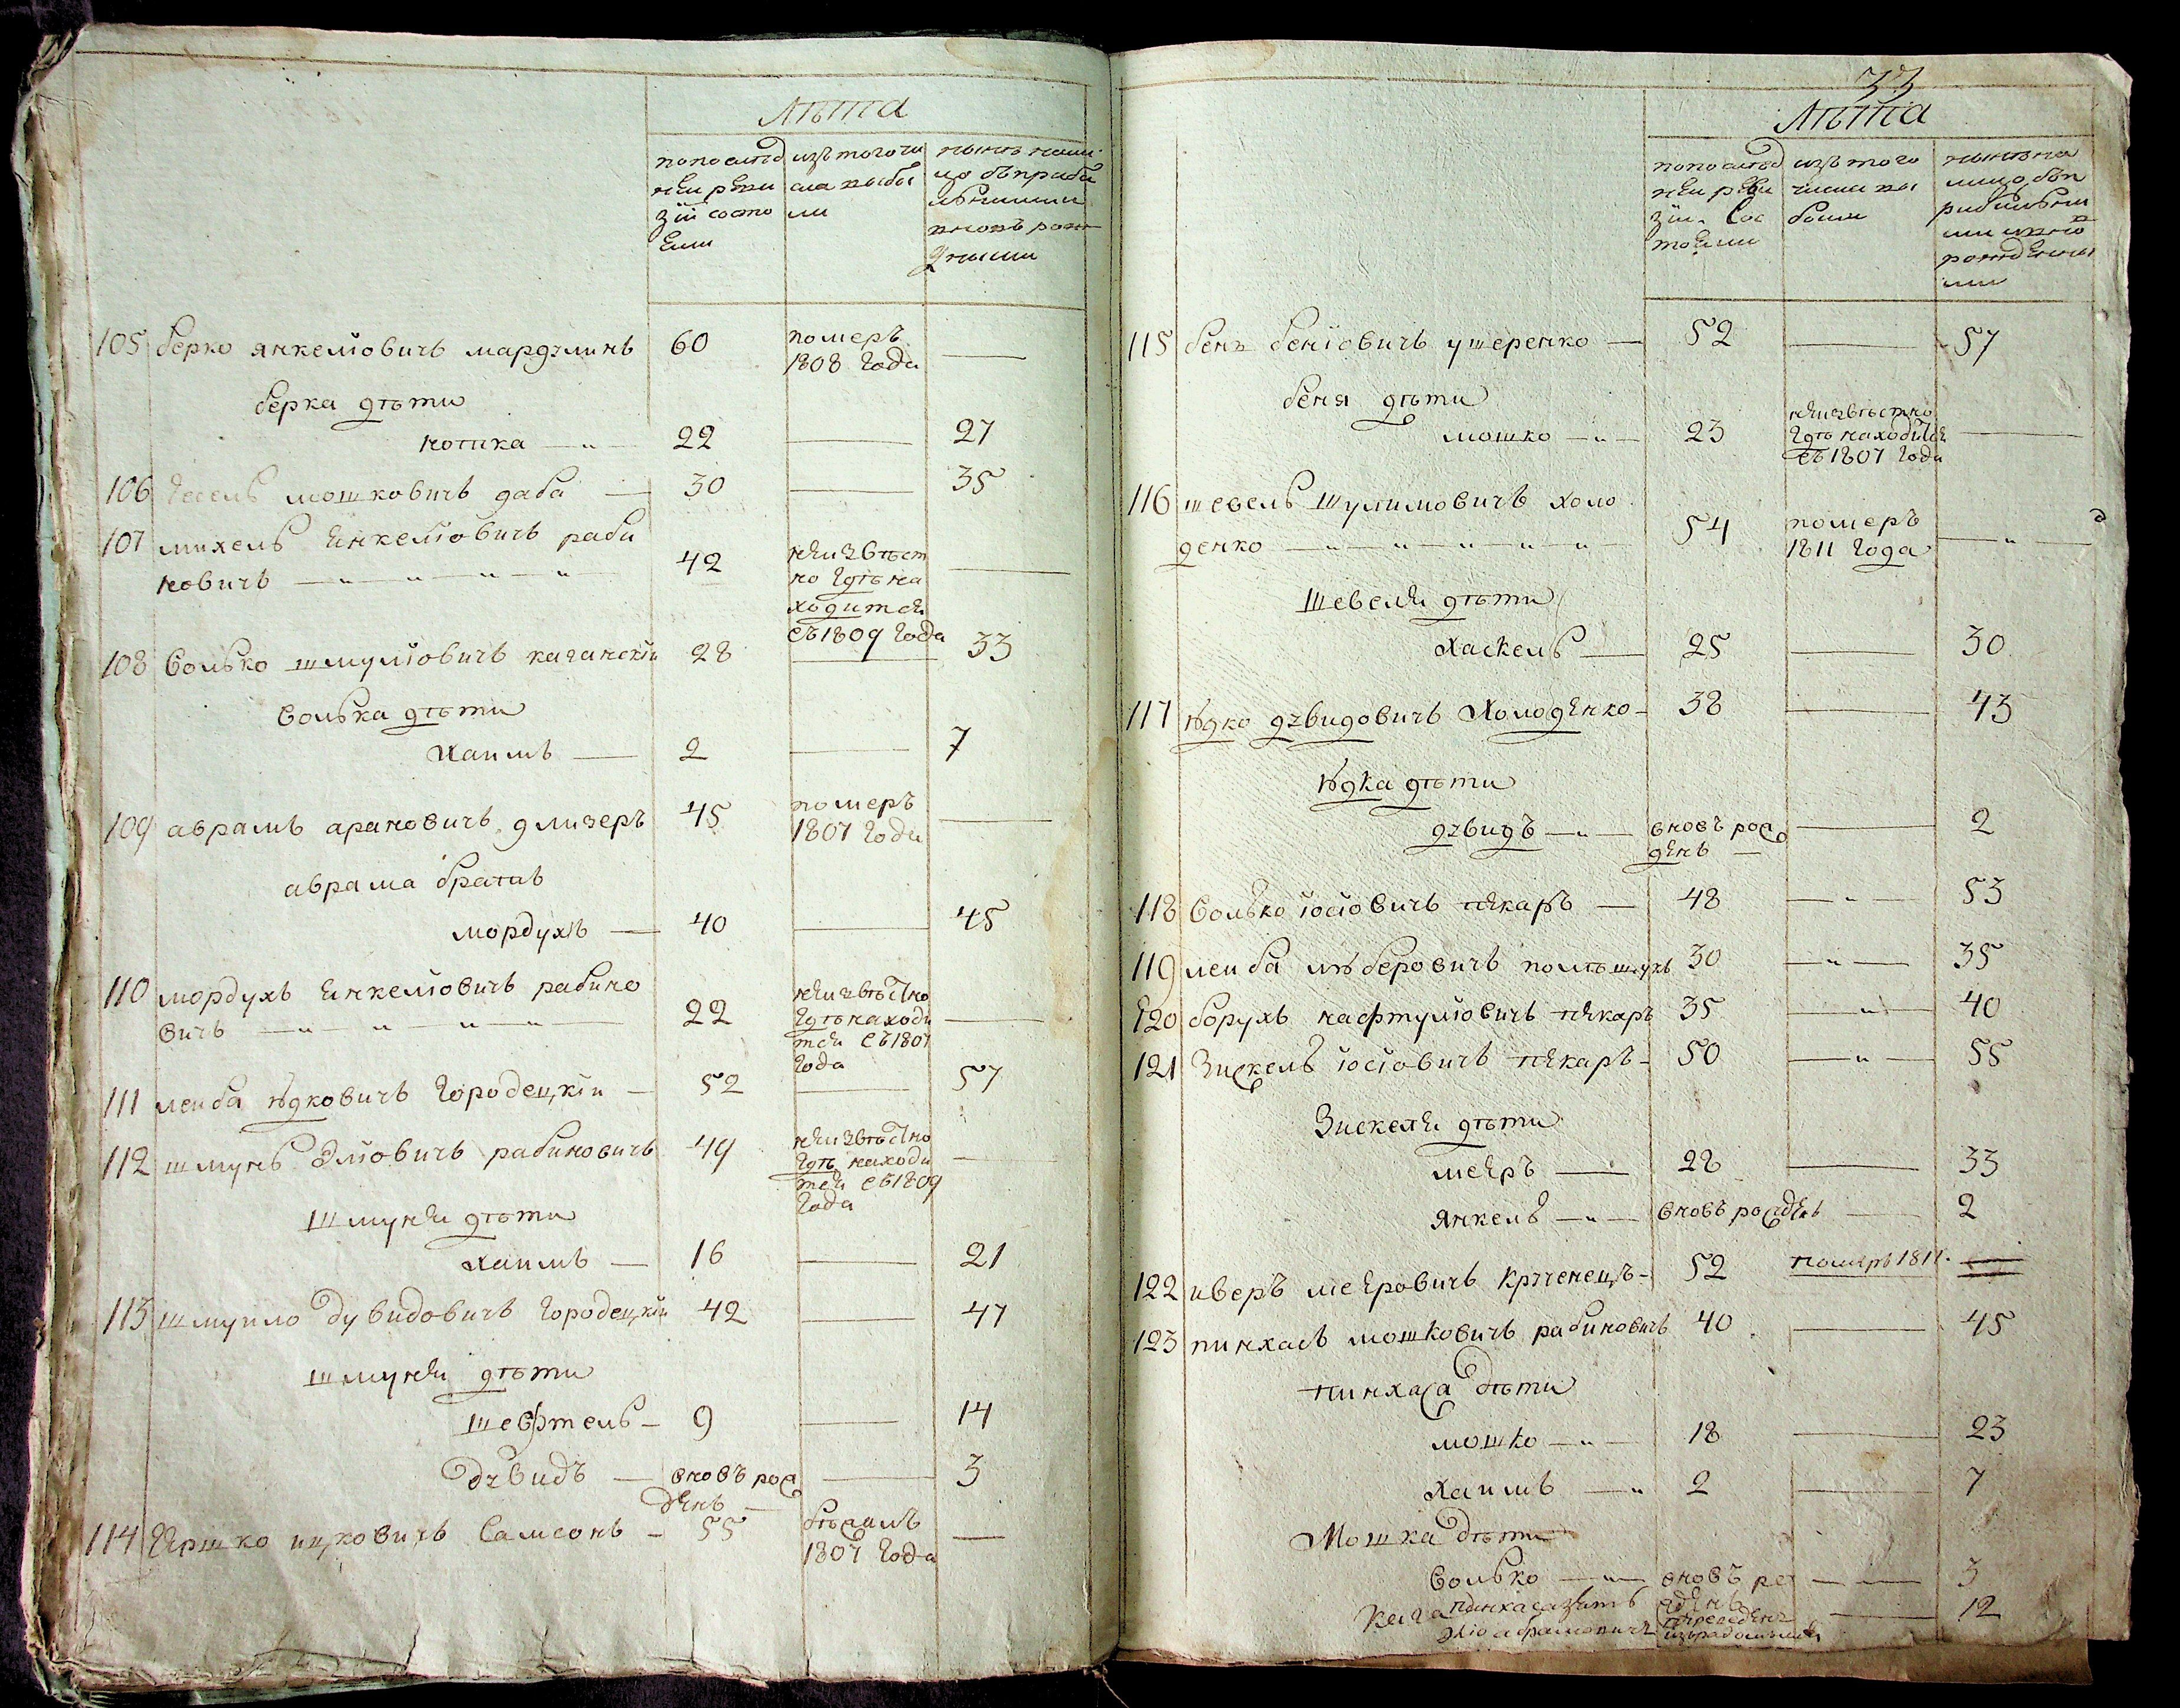 Лѣта
по послѣд изъ того чи нынѣ нали
ней реви сла выбы цо съ прибы
зіи состо ли лвшими
яли вновь рож
дными
105 берко янкелиовичъ мардулинъ 60 померъ —
1808 года
берка дѣти
нотика — 22 — 27
106 Гесель мошковичъ даба — 30 — 35
107 михель янкелиовичъ раби
новичъ — 42 неизвѣст —
но гдѣ на
ходится
съ 1809 года
108 волько шмулиовичъ каганскіи 28 — 33
волька дѣти
хаимъ — 2 — 7
109 аврамъ арановичъ длизеръ 45 померъ —
1807 года
аврама братъ
мордухъ — 40 — 45
110 мордухъ янкелиовичъ рабино
вичъ — 22 неизвѣстно —
гдѣ находи
тся съ 1807
года
111 леиба ѣдковичъ Городецкіи — 52 — 57
112 шмунь Элиовичъ рабиновичъ 49 неизвѣстно —
гдѣ находи
тся съ 1809
года
шмуня дѣти
хаимъ — 16 — 21
113 шмуило дувидовичъ городецкіи 42 — 47
шмуня дѣти
шевфтель — 9 — 14
дувидъ — вновъ рож — 3
денъ —
114 Гершко ицковичъ Самсонъ — 55 бѣжалъ —
1807 года
33
Лѣта
по послѣд изъ того нынѣ на
ней реви числа вы лицо съ п
зіи сос были рибылвши
тояли ми и вно
рожденны
ми
115 бенъ бениовичъ ушеренко — 52 — 57
беня дѣти
мошко — 23 неизвѣстно —
гдѣ находится
съ 1807 года
116 шевель шулимовичъ холо
денко — 54 померъ —
1811 года
шевеля дѣти
хаскель — 25 — 30
117 ѣдко дувидовичъ холоденко — 38 — 43
ѣдка дѣти
дувидъ — вновъ рож — 2
денъ —
118 волько иосиовичъ пекаръ — 48 — 53
119 леиба лѣберовичъ полѣщукъ 30 — 35
120 борухъ нафтулиовичъ пекаръ 35 — 40
121 Зискель иосиовичъ пекаръ — 50 — 55
Зискеля дѣти
меяръ — 28 — 33
янкель — вновъ рожденъ — 2
122 иверъ меяровичъ крученецъ — 52 померъ 1811. —
123 пинхасъ мошковичъ рабиновичъ 40 — 45
пинхаса дѣти
мошко — 18 — 23
хаимъ — 2 — 7
Мошка дѣти
волько — вновъ ро — 3
жденъ
пинхаса зять переведенъ — 12
абрамовичъ